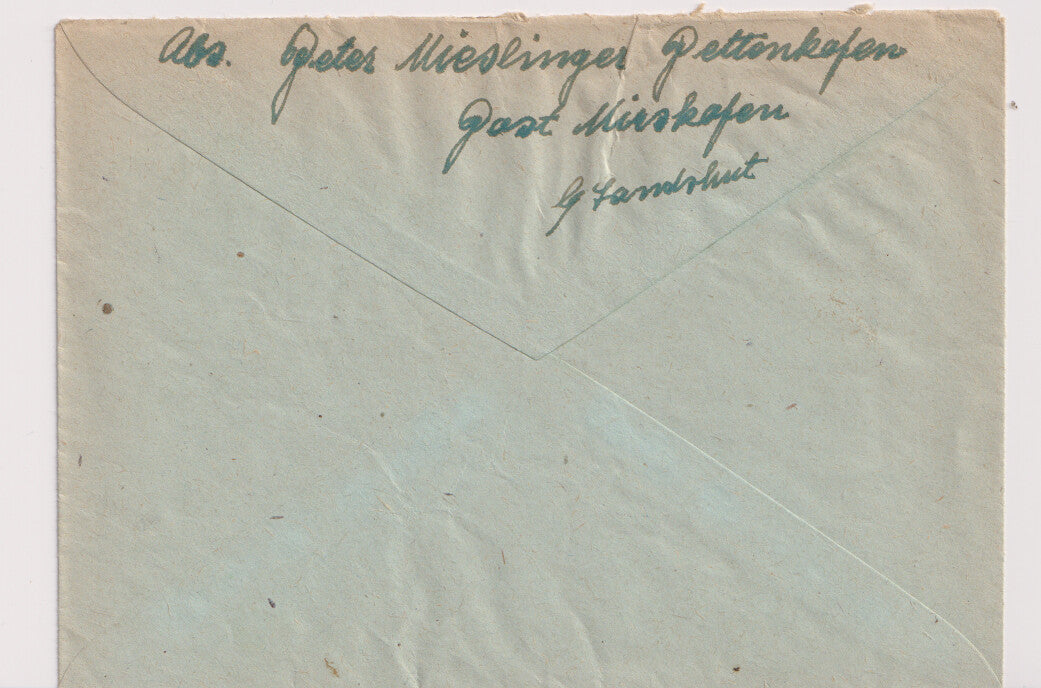 Abs. Peter Mieslinger Pettenkofen
Post Mirskofen
b/ Landshut